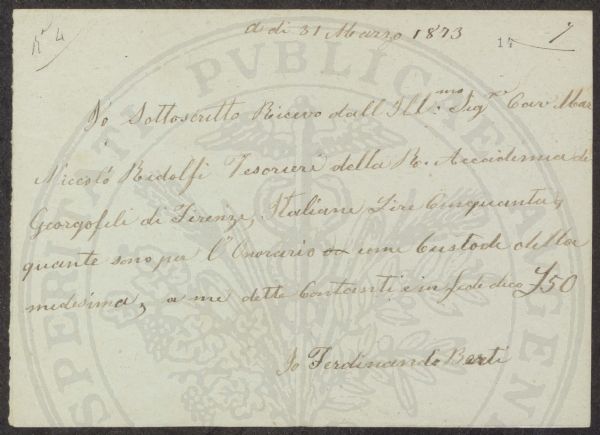 N° 4
a di 31 Marzo 1873
14 7
Io Sottoscritto Ricevo dall Ill:mo Sigre Cav Mar
Niccolò Ridolfi Tesorieri della R. Accademia di
Georgofili di Firenze, Italiane Lire Cinquanta,
quante sono per l'Onorario come Custode della
medesima, a me dette Contanti e in fede dico £50
Io Ferdinando Berti
PROSPERITATI PUBLICAE AUGENDAE